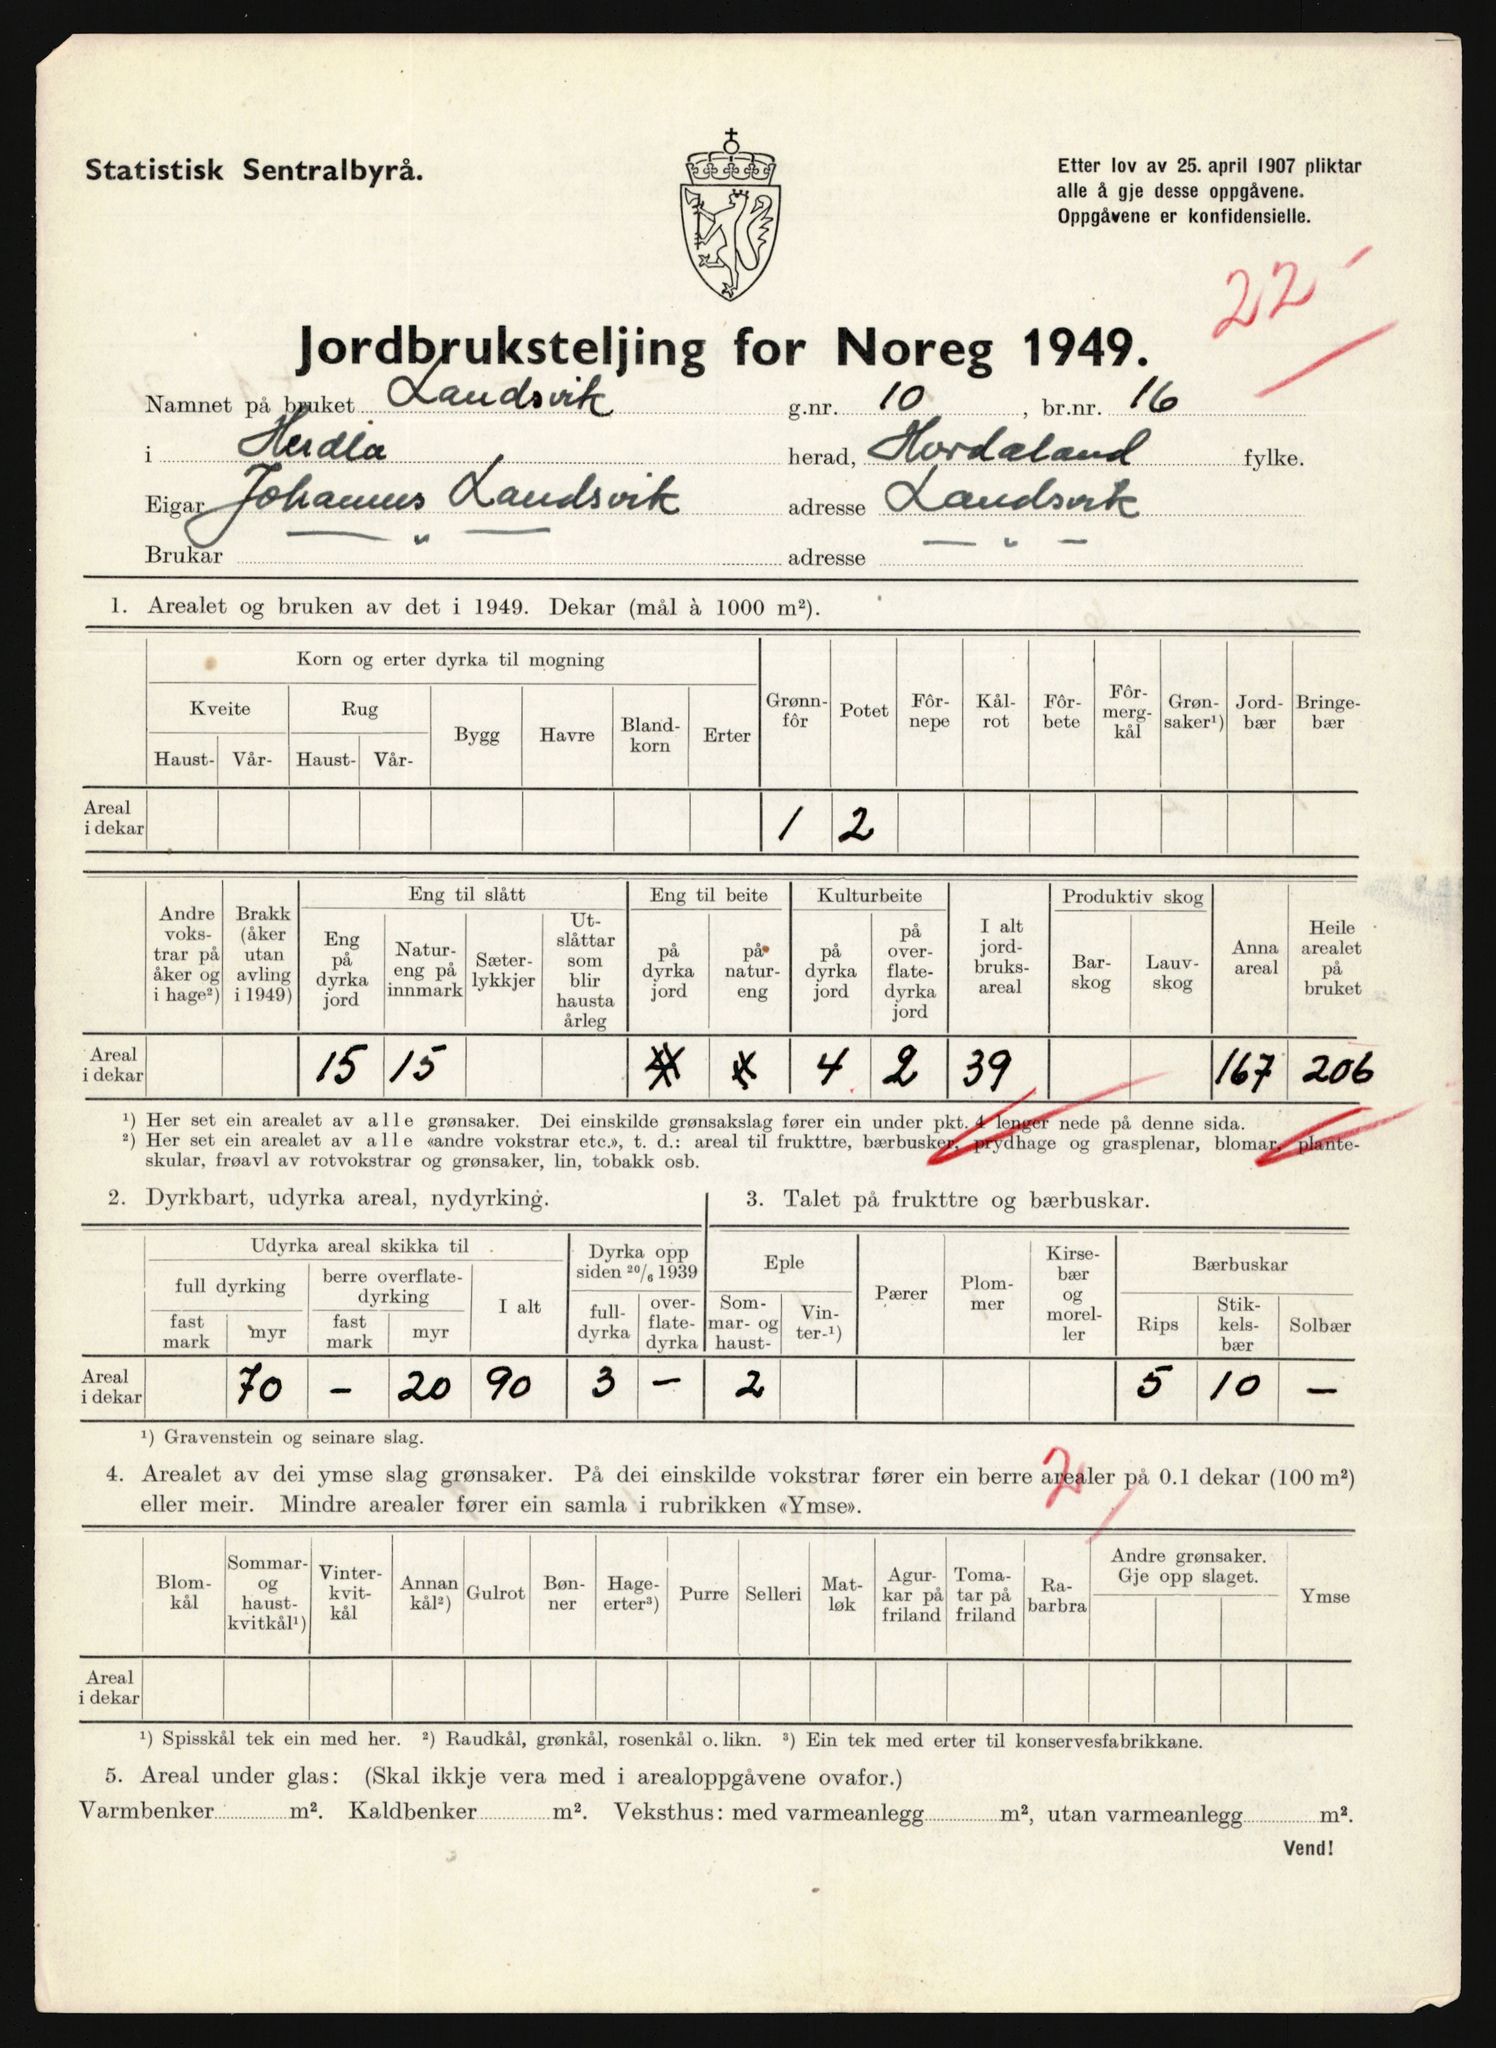 Statistisk Sentralbyrå.
Etter lov av 25. april 1907 pliktar
alle å gje desse oppgåvene.
Oppgåvene er konfidensielle.
22
Jordbruksteljing for Noreg 1949.
Namnet på bruket Landsvik g.nr. 10, br.nr. 16
i Herdla herad, Hordaland fylke.
Eigar Johannes Landsvik adresse Landsvik
Brukar — „ — adresse — „ —
1. Arealet og bruken av det i 1949. Dekar (mål à 1000 m²).
Korn og erter dyrka til mogning
Kveite Rug Bygg Havre Bland-korn Erter Grønn-fôr Potet Fôr-nepe Kål-rot Fôr-bete Fôr-mergkål Grøn-saker¹) Jord-bær Bringe-bær
Haust- Vår- Haust- Vår-
Areal i dekar 1 2
Andre vokstrar på åker og i hage²) Brakk (åker utan avling i 1949) Eng til slått Eng til beite Kulturbeite I alt jord-bruks-areal Produktiv skog Anna areal Heile arealet på bruket
Eng på dyrka jord Natur-eng på innmark Sæter-lykkjer Ut-slåttar som blir hausta årleg på dyrka jord på natur-eng på dyrka jord på over-flate-dyrka jord Bar-skog Lauv-skog
Areal i dekar 15 15 4 2 39 167 206
¹) Her set ein arealet av alle grønsaker. Dei einskilde grønsakslag fører ein under pkt. 4 lenger nede på denne sida.
²) Her set ein arealet av alle «andre vokstrar etc.», t. d.: areal til frukttre, bærbusker, prydhage og grasplenar, blomar, plante-
skular, frøavl av rotvokstrar og grønsaker, lin, tobakk osb.
2. Dyrkbart, udyrka areal, nydyrking.
3. Talet på frukttre og bærbuskar.
Udyrka areal skikka til Dyrka opp siden 20/6 1939 Eple Pærer Plom-mer Kirse-bær og morel-ler Bærbuskar
full dyrking berre overflate-dyrking I alt full-dyrka over-flate-dyrka Som-mar- og haust- Vin-ter-¹) Rips Stik-kels-bær Solbær
fast mark myr fast mark myr
Areal i dekar 70 – 20 90 3 – 2 5 10 –
¹) Gravenstein og seinare slag.
4. Arealet av dei ymse slag grønsaker. På dei einskilde vokstrar fører ein berre arealer på 0.1 dekar (100 m²)
eller meir. Mindre arealer fører ein samla i rubrikken «Ymse».
2
Blom-kål Sommar- og haust-kvitkål¹) Vinter-kvit-kål Annan kål²) Gulrot Bøn-ner Hage-erter³) Purre Selleri Mat-løk Agur-kar på friland Toma-tar på friland Ra-barbra Andre grønsaker. Gje opp slaget. Ymse
Areal i dekar
¹) Spisskål tek ein med her. ²) Raudkål, grønkål, rosenkål o. likn. ³) Ein tek med erter til konservesfabrikkane.
5. Areal under glas: (Skal ikkje vera med i arealoppgåvene ovafor.)
Varmbenker m². Kaldbenker m². Veksthus: med varmeanlegg m², utan varmeanlegg m².
Vend!